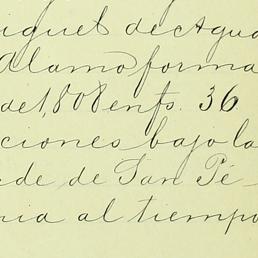 iguel de Agua
Alamo forma
de 1,808 en fs. 36
ciones bajo la
de de San Pé
nia al tiempo